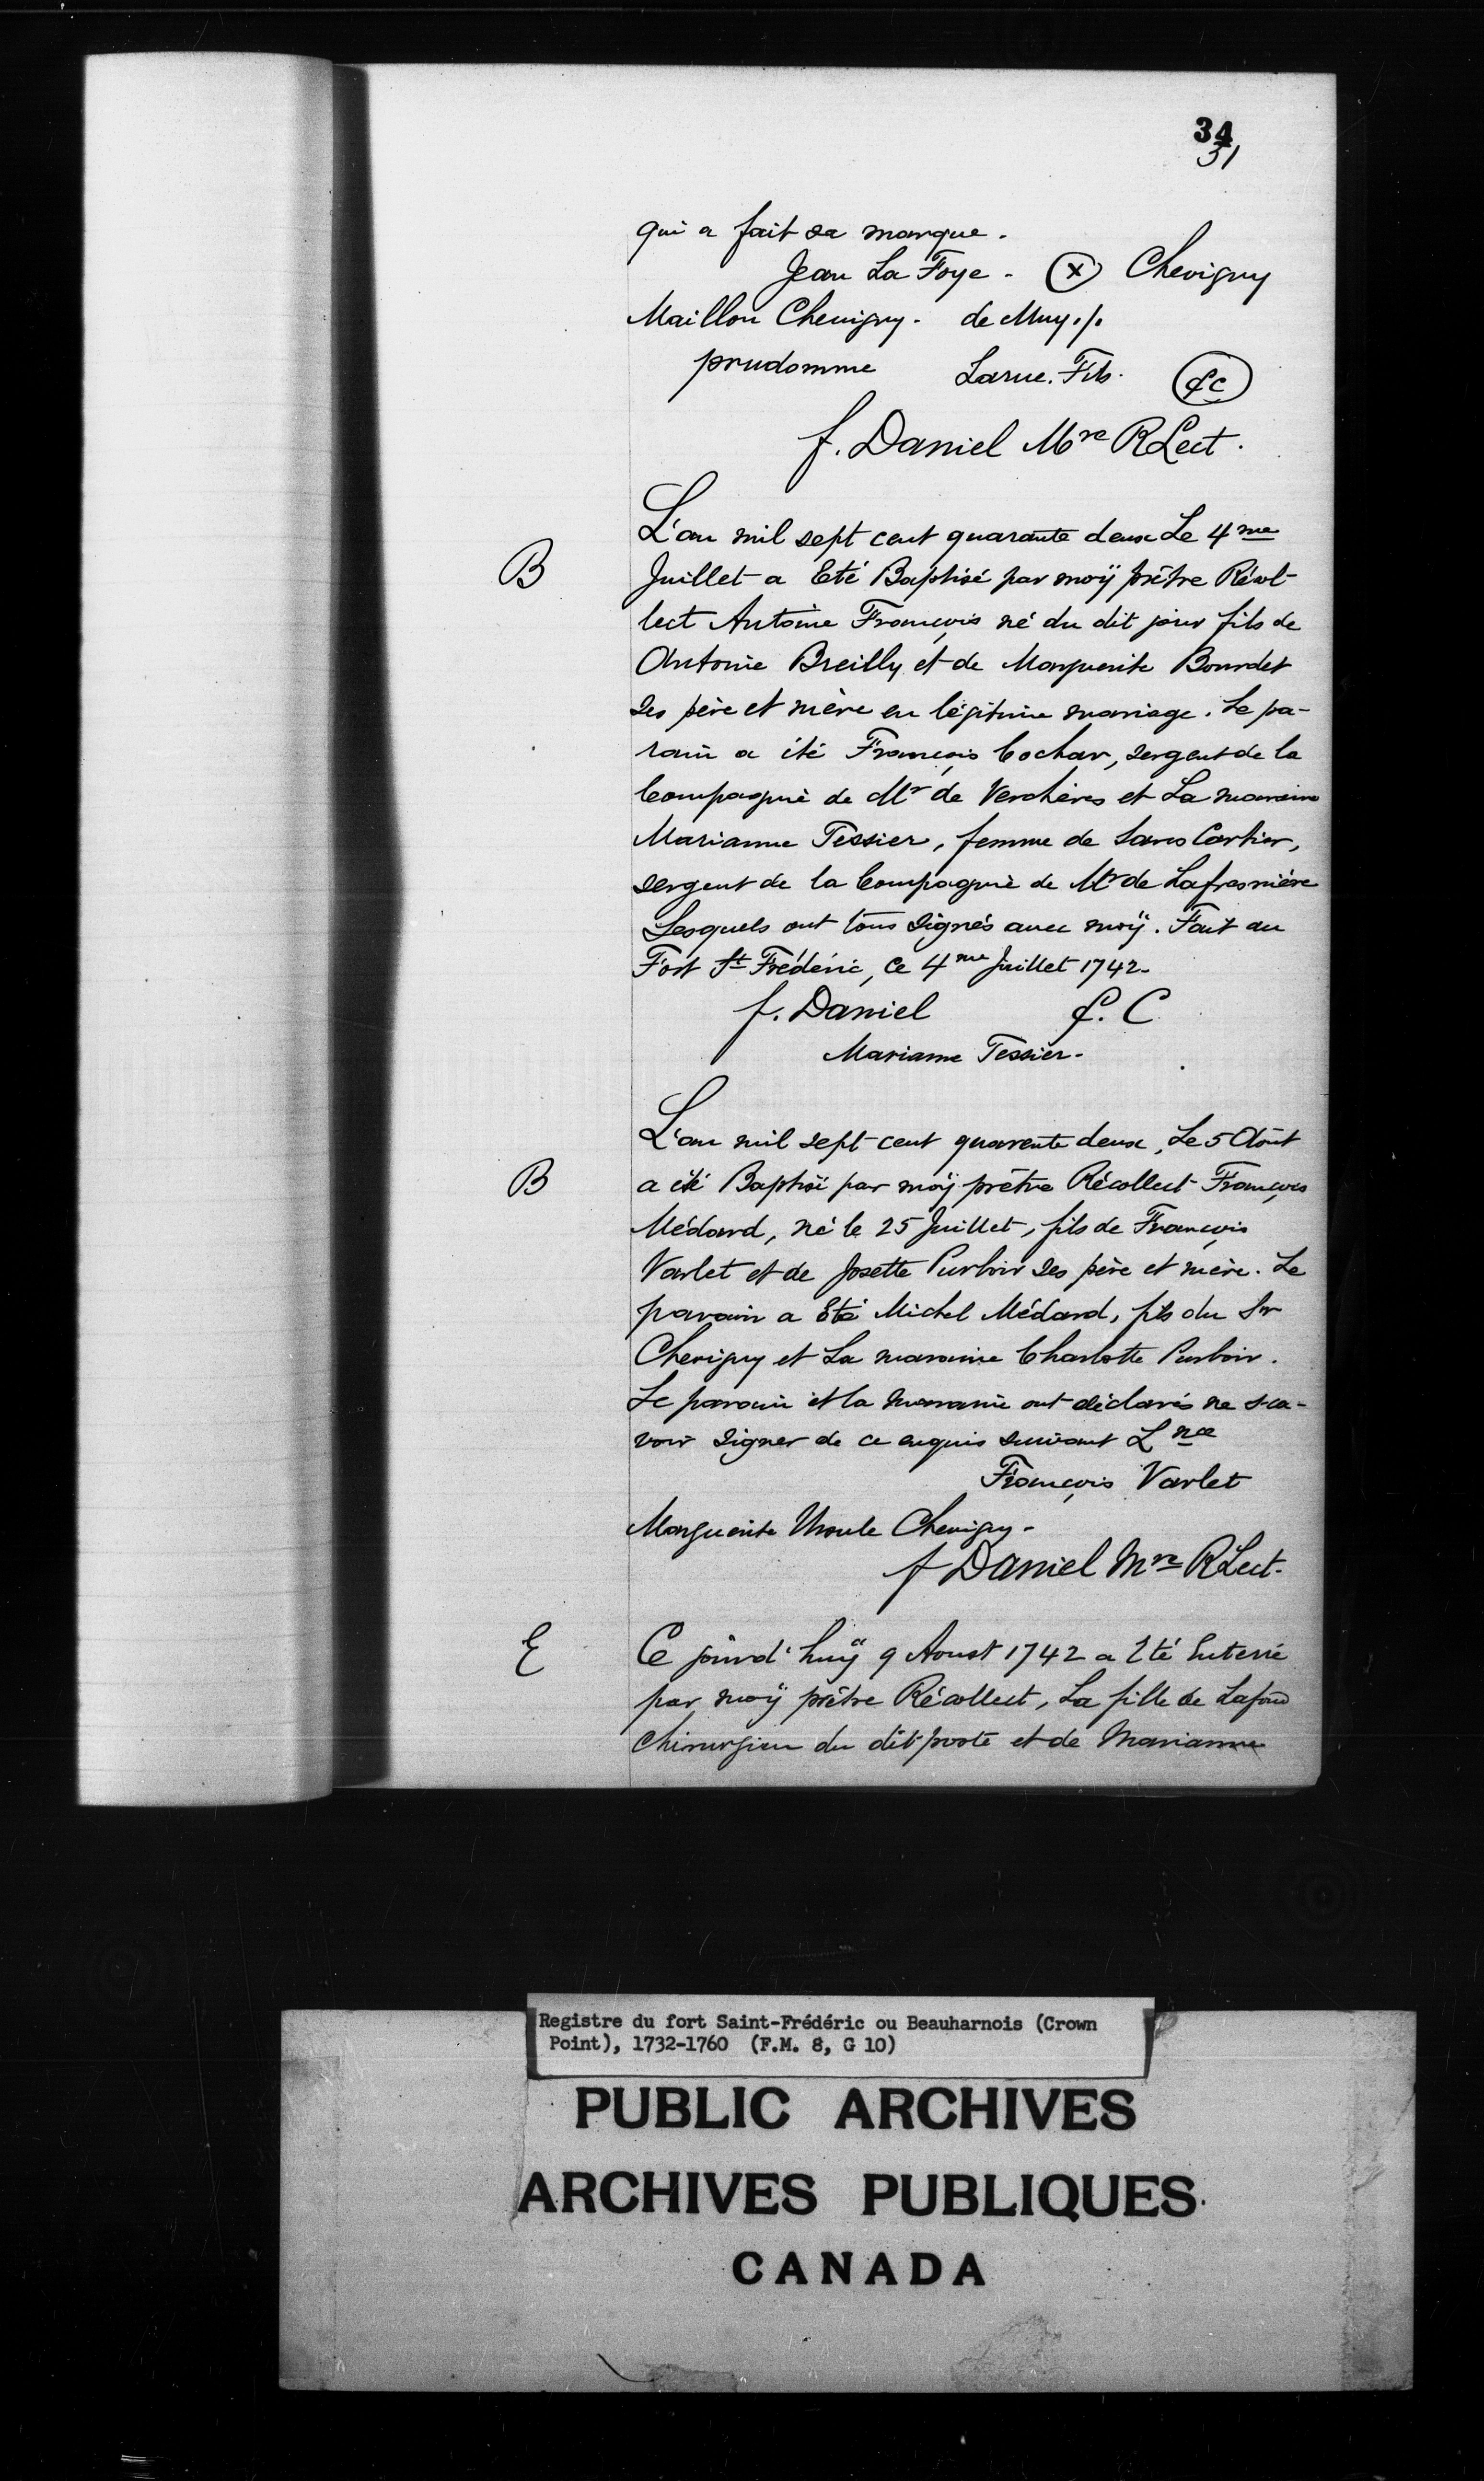 34
31
qui a fait sa marque.
Jean La Foye. (x) Chevigny
Maillou Chevigny. de Muy./.
prudomme Larue. Fils. (fc)
f. Daniel Mre RLect.
L'an mil sept cent quarante deux Le 4me
B
Juillet a Eté Baptisé par moÿ prêtre Récol-
lect Antoine François né du dit jour fils de
Antoine Breilly et de Marguerite Bourdet
ses père et mère en légitime mariage. Le pa-
rain a été François Cochar, sergent de la
Compagnie de Mr de Verchères et La maraine
Marianne Tessier, femme de Cartier,
sergent de la Compagnie de Mr de Lafresnière
Lesquels ont tous signés avec moÿ. Fait au
Fort St Frédéric, ce 4me Juillet 1742.
f. Daniel f. C
Marianne Tessier.
L'an mil sept cent quarente deux, Le 5 Août
B
a été Baptisé par moÿ prêtre Récollect François
Médard, né le 25 Juillet, fils de François
Varlet et de Josette Purboir ses père et mère. Le
parain a Eté Michel Médard, fils du Sr
Chevigny et La maraine Charlotte Purboir.
Le parain et la maraine ont déclarés ne sca-
voir signer de ce enquis suivant L nce
François Varlet
Marguerite Ursule Chevigny.
f Daniel Mre RLect.
E
Ce jourd'huÿ 9 Aoust 1742 a Eté Enterré
par moÿ prêtre Récollect, La fille de
Chirurgien du dit poste et de Marianne
Registre du fort Saint-Frédéric ou Beauharnois (Crown
Point), 1732-1760 (F.M. 8, G 10)
PUBLIC ARCHIVES
ARCHIVES PUBLIQUES
CANADA